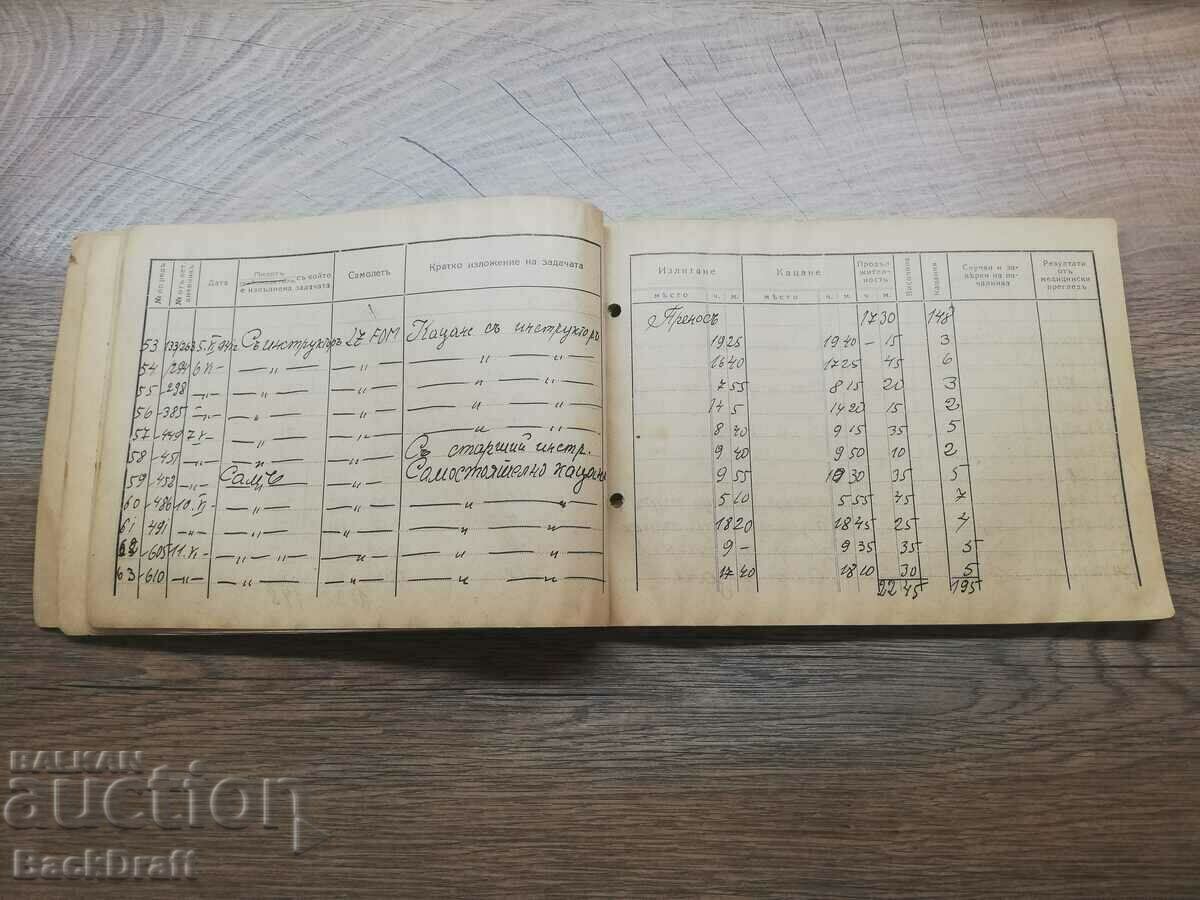 № по редъ № въ лет. дневникъ Дата Пилотъ съ който е изпълнена задачата Самолетъ Кратко изложение на задачата
Излитане Кацане Продължителность Височина Кацания Случаи и заверки на началника Резултати отъ медицински прегледъ
място ч. м. място ч. м. ч. м.
Преносъ 17 30 148
53 Съ инструкторъ Кацане съ инструкторъ 19 25 19 40 – 15 3
54 294 6 — „ — — „ — — „ — — „ — 16 40 17 25 45 6
55 298 — „ — — „ — — „ — — „ — — „ — 7 55 8 15 20 3
56 385 — „ — — „ — — „ — — „ — — „ — 14 5 14 20 15 2
57 449 7 — „ — — „ — — „ — — „ — 8 40 9 15 35 5
58 451 — „ — — „ — — „ — Съ старший инстр. 9 40 9 50 10 2
59 458 — „ — Самъ — „ — Самостоятелно кацане 9 55 10 30 35 5
60 486 10. — „ — — „ — — „ — — „ — 5 10 5 55 45 7
61 491 — „ — — „ — — „ — — „ — 18 20 18 45 25 4
62 605 11. — „ — — „ — — „ — — „ — 9 – 9 35 35 5
63 610 — „ — — „ — — „ — — „ — — „ — 17 40 18 10 30 5
22 45 195
BALKAN
auction
BackDraft